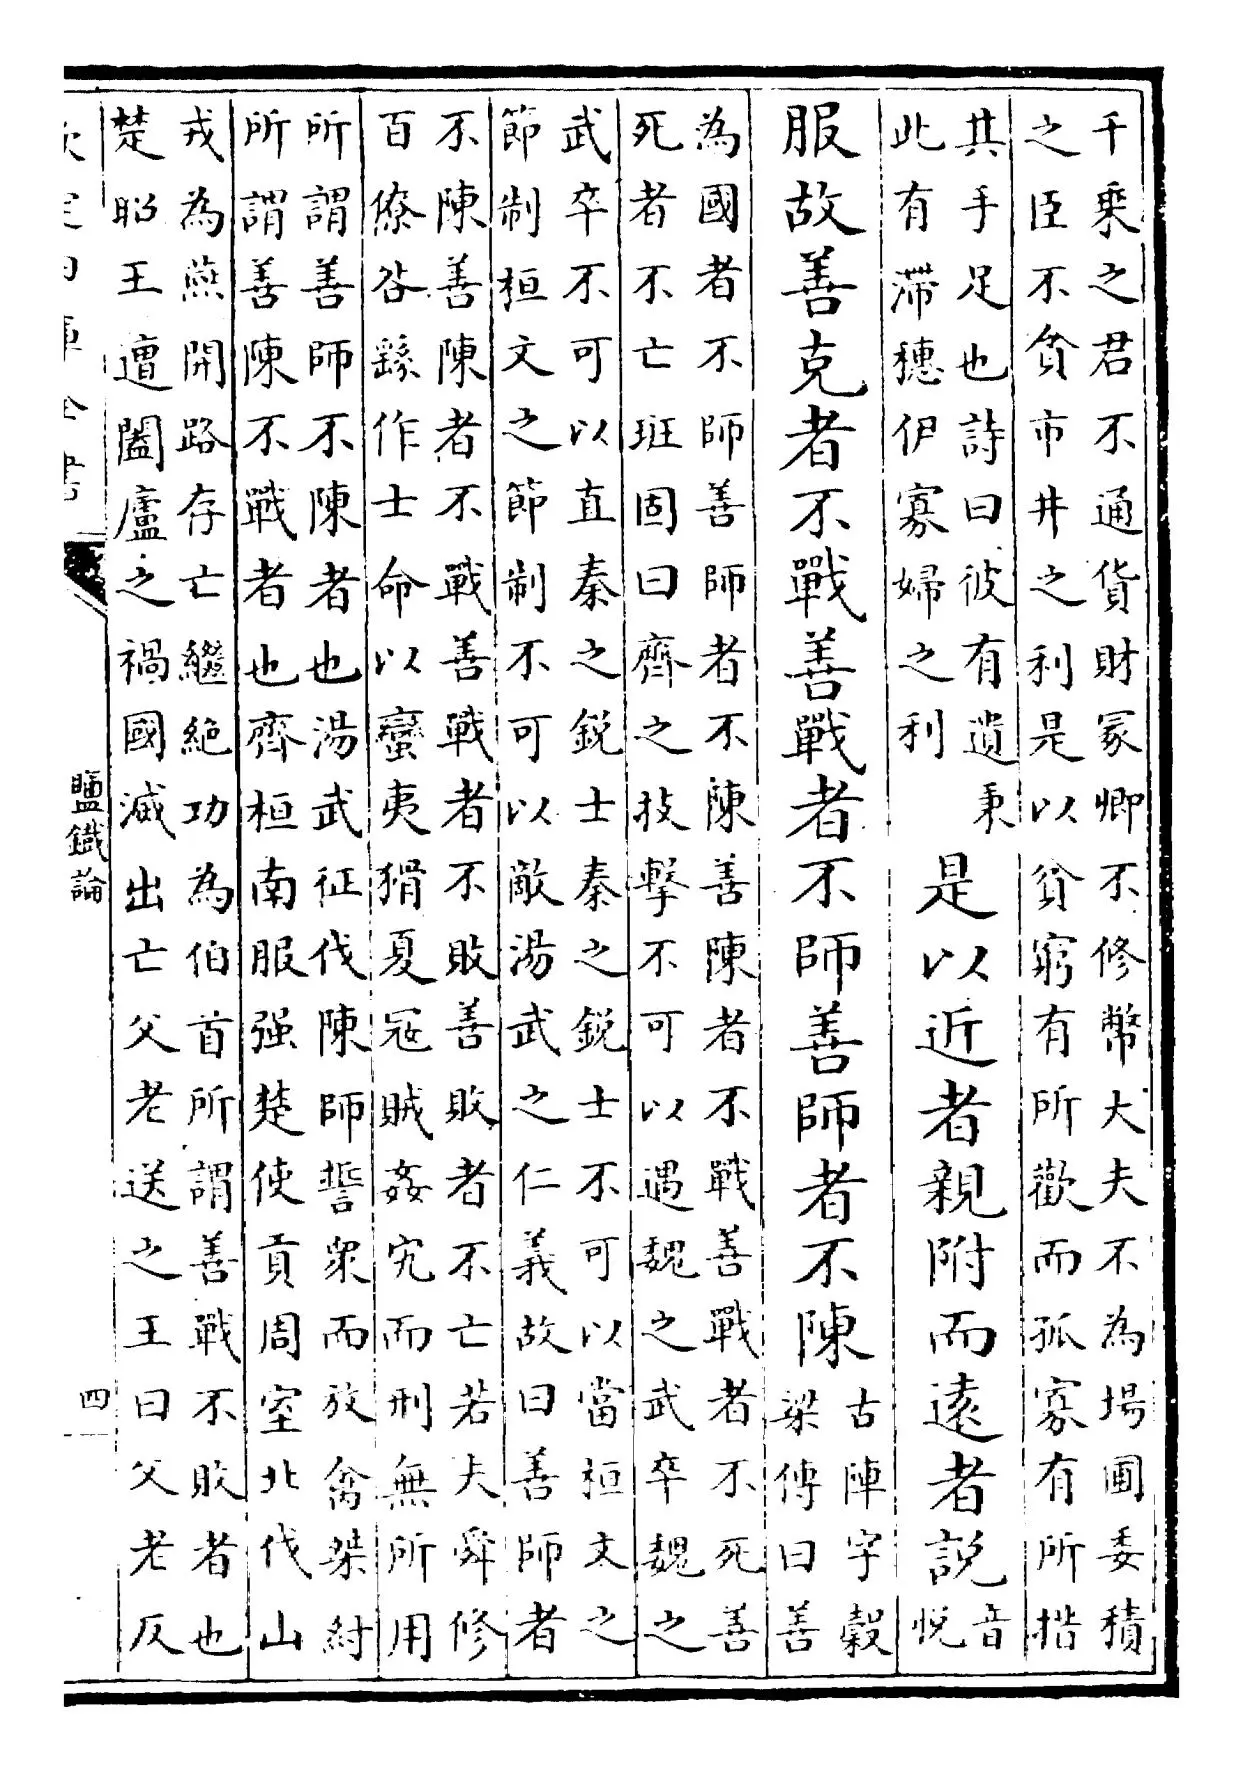 千乗之君不通貨財冢卿不修幣大夫不為場圃委積
之臣不貪市井之利是以貧窮有所歡而孤寡有所措
其手足也詩曰彼有遺秉
此有滯穗伊寡婦之利
是以近者親附而遠者説
音
悦
服故善克者不戰善戰者不師善師者不陳
古陣字穀
梁傳曰善
為國者不師善師者不陳善陳者不戰善戰者不死善
死者不亡班固曰齊之技擊不可以遇魏之武卒魏之
武卒不可以直秦之鋭士秦之鋭士不可以當桓文之
節制桓文之節制不可以敵湯武之仁義故曰善師者
不陳善陳者不戰善戰者不敗善敗者不亡若夫舜修
百僚咎繇作士命以蠻夷猾夏冦賊姦宄而刑無所用
所謂善師不陳者也湯武征伐陳師誓衆而放禽桀紂
所謂善陳不戰者也齊桓南服强楚使貢周室北伐山
戎為燕開路存亡繼絶功為伯首所謂善戰不敗者也
楚昭王遭闔廬之禍國滅出亡父老送之王曰父老反
欽定四庫全書
鹽鐵論
四